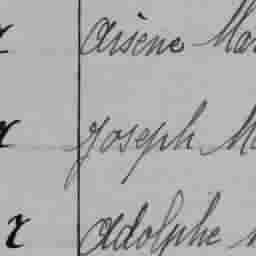 r Arsène Mar
r Joseph M
r Adolphe